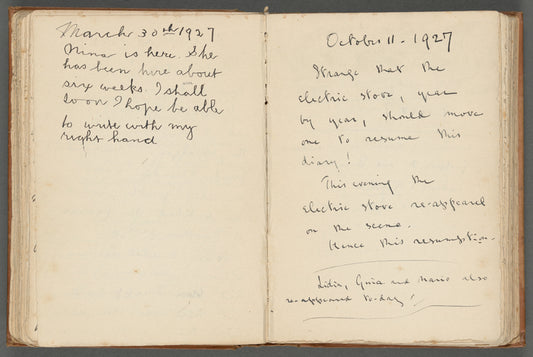 March 30th 1927
Nina is here. She
has been here about
six weeks. I shall
soon I hope be able
to write with my
right hand
October 11 - 1927
Strange that the
electric stove, year
by year, should move
one to resume this
diary!
This evening the
electric stove re-appeared
on the scene.
Hence this resumption.
Lidia, Giulia and Mario also
re-appeared to-day!